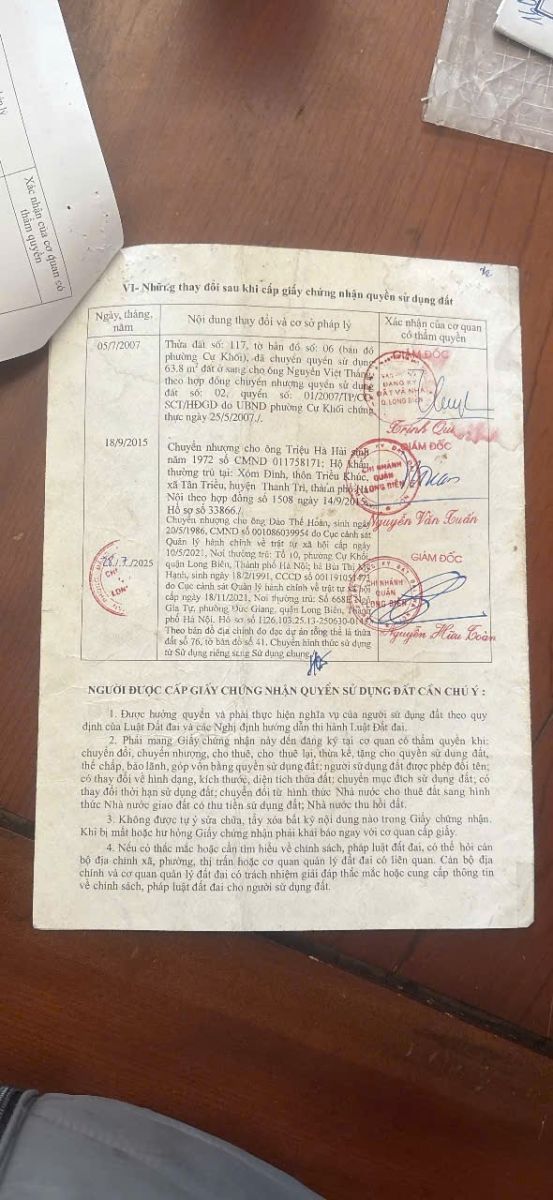 Xác nhận của cơ quan có
thẩm quyền
VI- Những thay đổi sau khi cấp giấy chứng nhận quyền sử dụng đất
Ngày, tháng,
năm
Nội dung thay đổi và cơ sở pháp lý
Xác nhận của cơ quan
có thẩm quyền
05/7/2007
Thửa đất số: 117, tờ bản đồ số: 06 (bản đồ
phường Cự Khối), đã chuyển quyền sử dụng
63.8 m² đất ở sang cho ông Nguyễn Việt Thắng
theo hợp đồng chuyển nhượng quyền sử dụng
đất số: 02, quyển số: 01/2007/TP/CC-
SCT/HĐGD do UBND phường Cự Khối chứng
thực ngày 25/5/2007./.
GIÁM ĐỐC
ĐĂNG KÝ
ĐẤT VÀ NHÀ
Q. LONG BIÊN
Trịnh
18/9/2015
Chuyển nhượng cho ông Triệu Hà Hải sinh
năm 1972 số CMND 011758171; Hộ khẩu
thường trú tại: Xóm Đình, thôn Triều Khúc,
xã Tân Triều, huyện Thanh Trì, thành phố Hà
Nội theo hợp đồng số 1508 ngày 14/9/2015.
Hồ sơ số 33866./.
GIÁM ĐỐC
CHI NHÁNH
QUẬN
LONG BIÊN
Nguyễn Văn Tuấn
/7/2025
Chuyển nhượng cho ông Đào Thế Hoàn, sinh ngày
20/5/1986, CMND số 001086039954 do Cục cảnh sát
Quản lý hành chính về trật tự xã hội cấp ngày
10/5/2021, Nơi thường trú: Tổ 10, phường Cự Khối,
quận Long Biên, Thành phố Hà Nội; bà Bùi Thị
Hạnh, sinh ngày 18/2/1991, CCCD số 001191051471
do Cục cảnh sát Quản lý hành chính về trật tự xã hội
cấp ngày 18/11/2021, Nơi thường trú: Số 668E Ngô
Gia Tự, phường Đức Giang, quận Long Biên, Thành
phố Hà Nội. Hồ sơ số H26.103.25.13-250630-
Theo bản đồ địa chính đo đạc dự án tổng thể là thửa
đất số 76, tờ bản đồ số 41. Chuyển hình thức sử dụng
từ Sử dụng riêng sang Sử dụng chung
GIÁM ĐỐC
CHI NHÁNH
QUẬN
LONG BIÊN
Nguyễn Hữu Toàn
NGƯỜI ĐƯỢC CẤP GIẤY CHỨNG NHẬN QUYỀN SỬ DỤNG ĐẤT CẦN CHÚ Ý :
1. Được hưởng quyền và phải thực hiện nghĩa vụ của người sử dụng đất theo quy
định của Luật Đất đai và các Nghị định hướng dẫn thi hành Luật Đất đai.
2. Phải mang Giấy chứng nhận này đến đăng ký tại cơ quan có thẩm quyền khi:
chuyển đổi, chuyển nhượng, cho thuê, cho thuê lại, thừa kế, tặng cho quyền sử dụng đất,
thế chấp, bảo lãnh, góp vốn bằng quyền sử dụng đất; người sử dụng đất được phép đổi tên;
có thay đổi về hình dạng, kích thước, diện tích thửa đất; chuyển mục đích sử dụng đất; có
thay đổi thời hạn sử dụng đất; chuyển đổi từ hình thức Nhà nước cho thuê đất sang hình
thức Nhà nước giao đất có thu tiền sử dụng đất; Nhà nước thu hồi đất.
3. Không được tự ý sửa chữa, tẩy xóa bất kỳ nội dung nào trong Giấy chứng nhận.
Khi bị mất hoặc hư hỏng Giấy chứng nhận phải khai báo ngay với cơ quan cấp giấy.
4. Nếu có thắc mắc hoặc cần tìm hiểu về chính sách, pháp luật đất đai, có thể hỏi cán
bộ địa chính xã, phường, thị trấn hoặc cơ quan quản lý đất đai có liên quan. Cán bộ địa
chính và cơ quan quản lý đất đai có trách nhiệm giải đáp thắc mắc hoặc cung cấp thông tin
về chính sách, pháp luật đất đai cho người sử dụng đất.